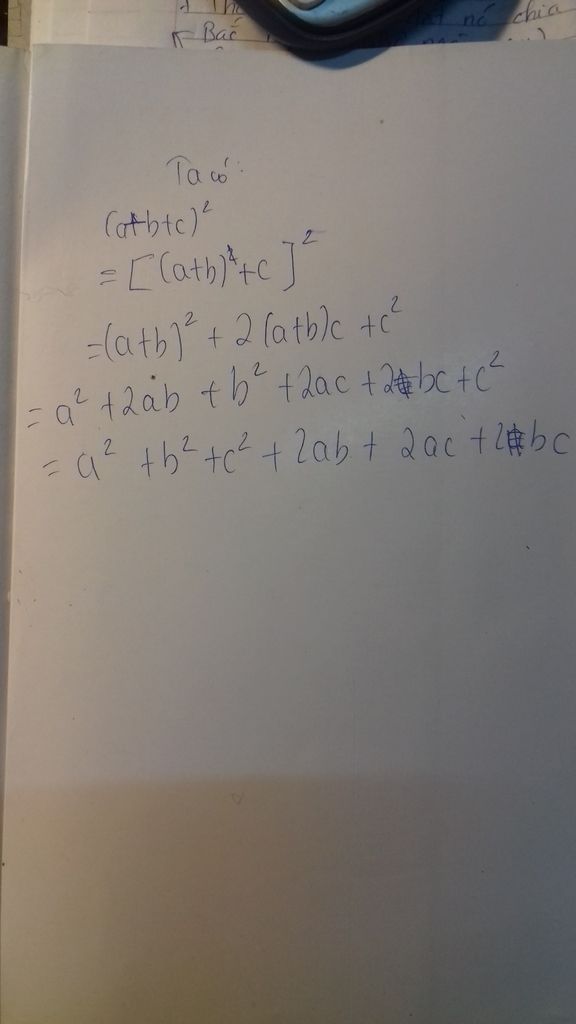 Bac
nó chia
Ta có:
(a+b+c)²
= [(a+b)+c]²
=(a+b)² + 2(a+b)c +c²
= a² +2ab +b² +2ac +2bc+c²
= a² +b² +c² + 2ab + 2ac +2bc